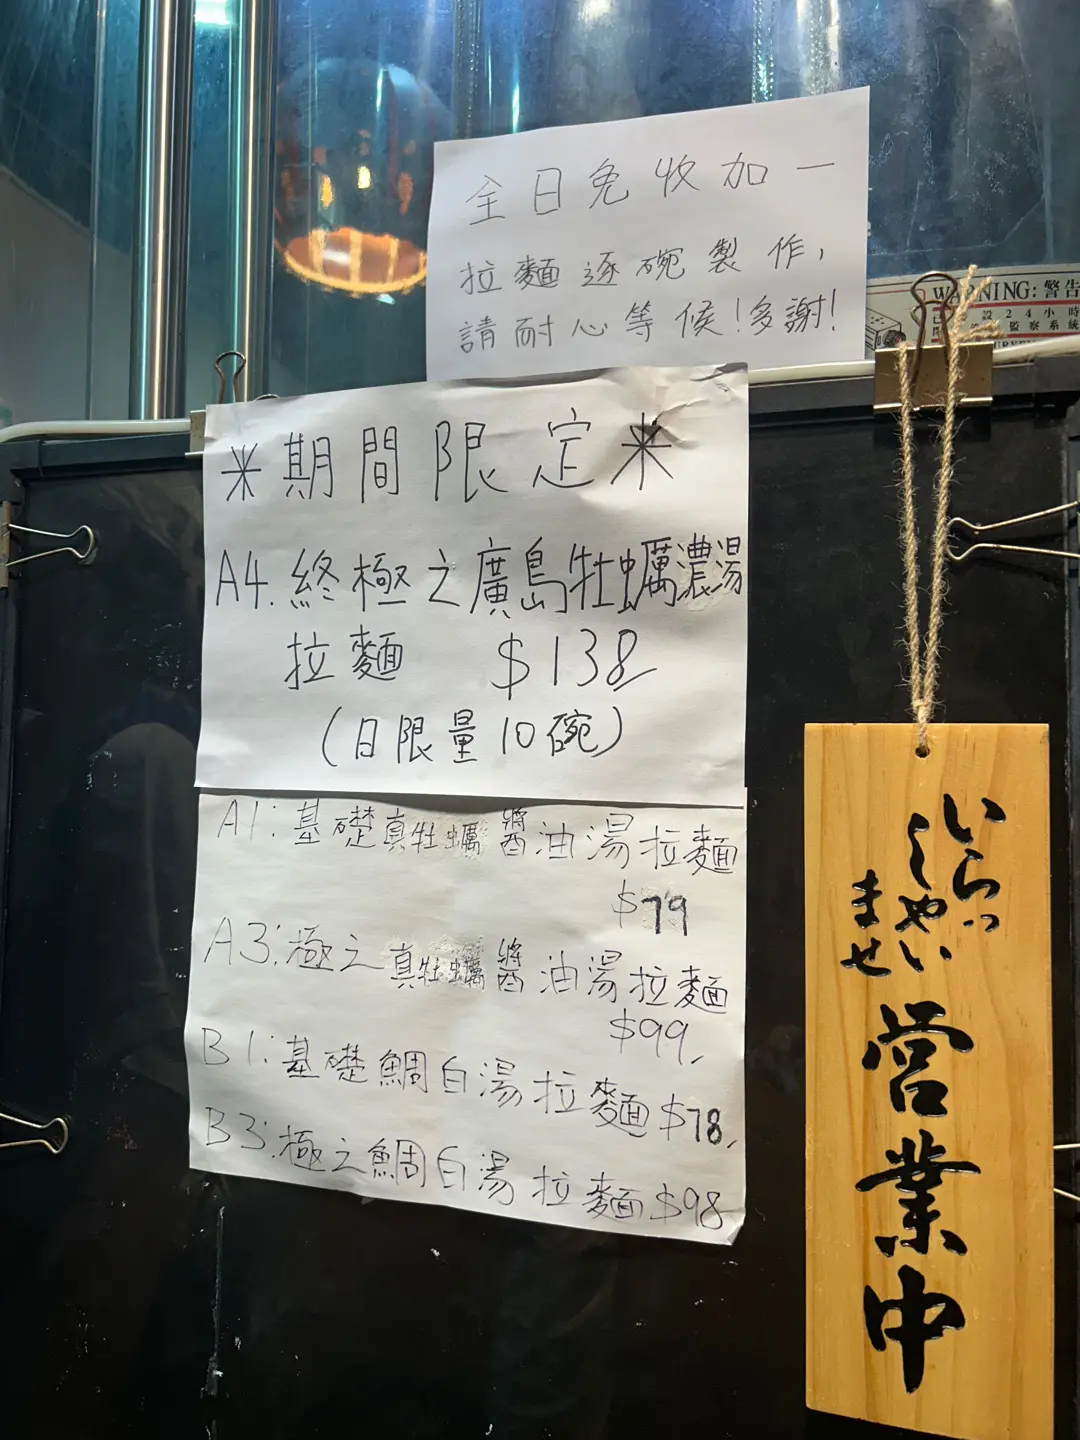 全日免收加一
拉麵逐碗製作,
請耐心等候!多謝!
WARNING: 警告
設24小時
監察系統
*期間限定*
A4.終極之廣島牡蠣濃湯
拉麵 $138
(日限量10碗)
A1:基礎真牡蠣醬油湯拉麵
$79
A3:極之真牡蠣醬油湯拉麵
$99
B1:基礎鯛白湯拉麵$78
B3:極之鯛白湯拉麵$98
いらっ
しゃい
ませ
営業中